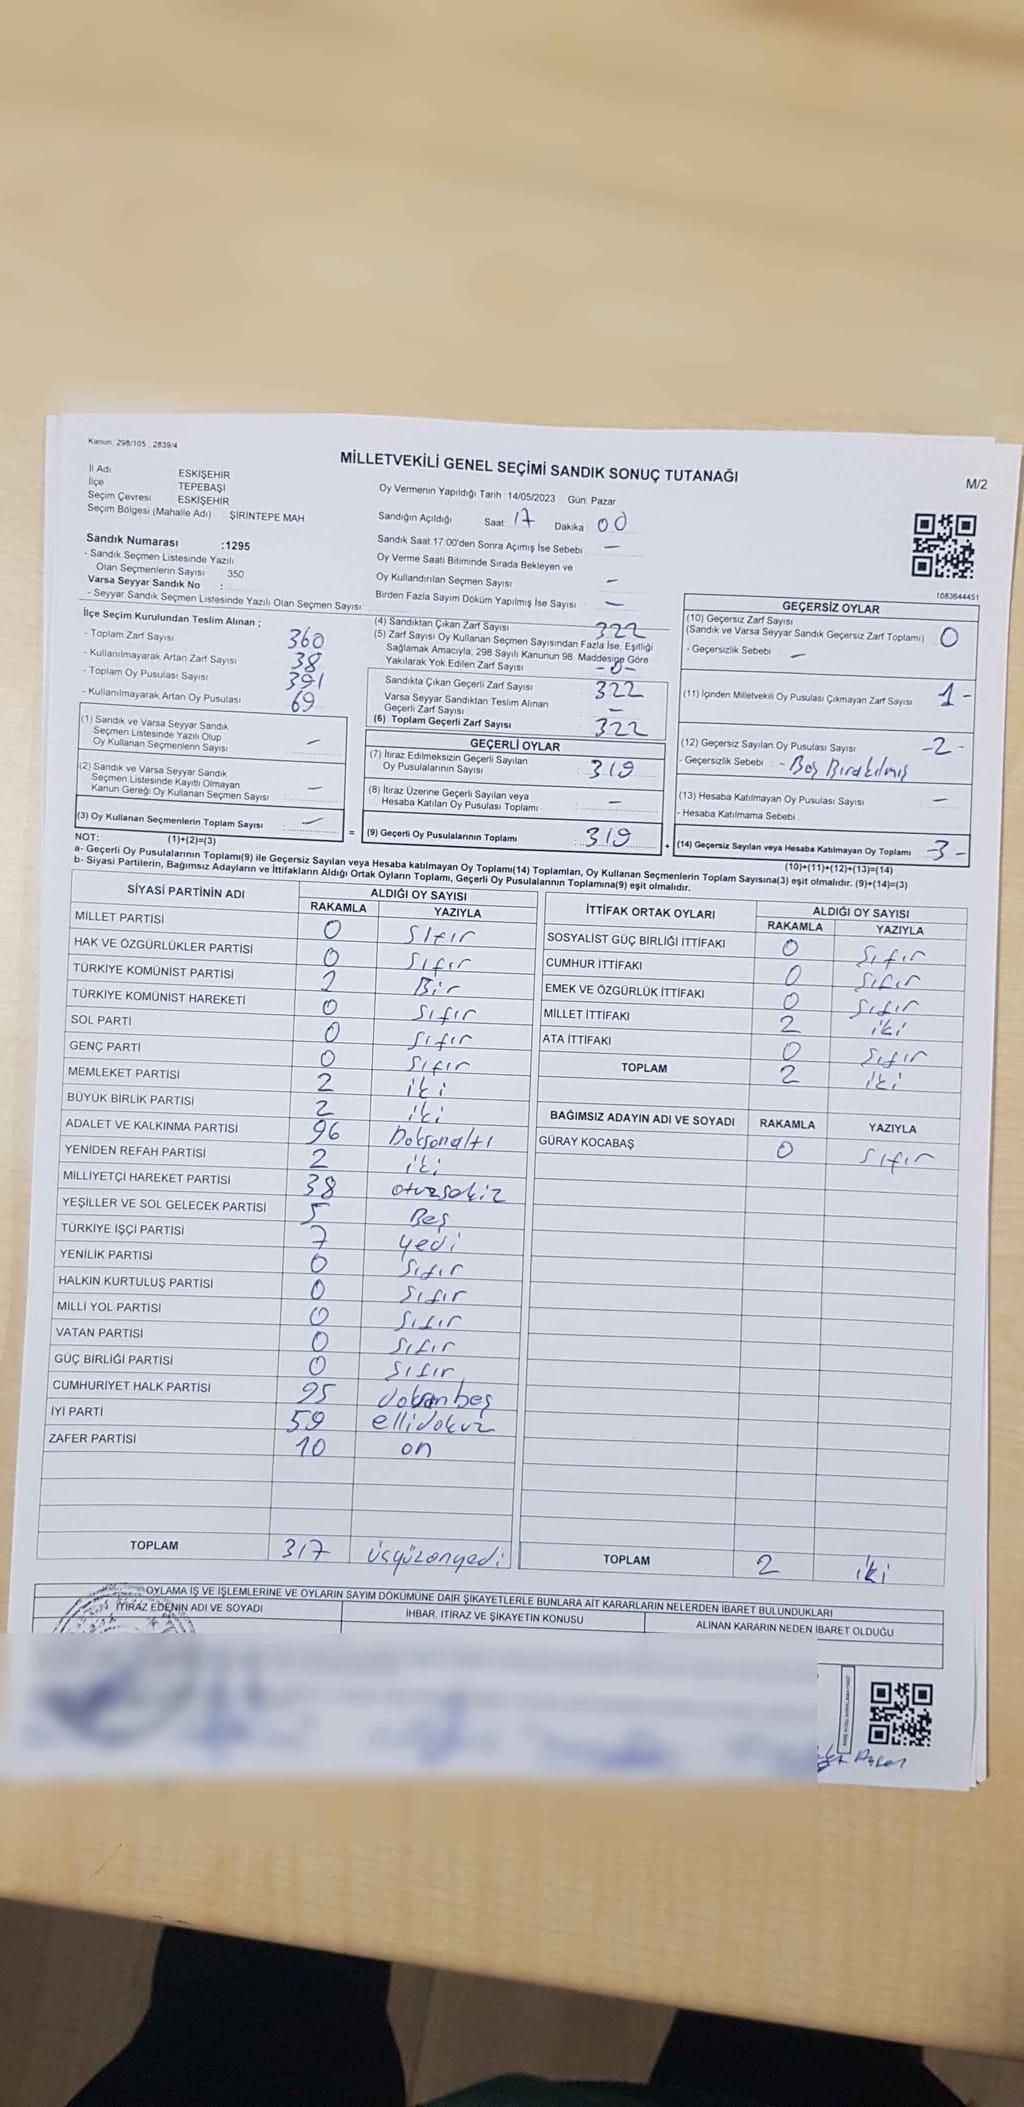 Kanun: 298/105 , 2839/4
MİLLETVEKİLİ GENEL SEÇİMİ SANDIK SONUÇ TUTANAĞI
M/2
İl Adı ESKİŞEHİR
İlçe TEPEBAŞI
Seçim Çevresi ESKİŞEHİR
Seçim Bölgesi (Mahalle Adı) ŞİRİNTEPE MAH.
Sandık Numarası :1295
- Sandık Seçmen Listesinde Yazılı
Olan Seçmenlerin Sayısı 350
Varsa Seyyar Sandık No :
- Seyyar Sandık Seçmen Listesinde Yazılı Olan Seçmen Sayısı:
Oy Vermenin Yapıldığı Tarih : 14/05/2023 Gün: Pazar
Sandığın Açıldığı Saat: 17 Dakika: 00
Sandık Saat 17:00'den Sonra Açımış İse Sebebi : —
Oy Verme Saati Bitiminde Sırada Bekleyen ve
Oy Kullandırılan Seçmen Sayısı —
Birden Fazla Sayım Döküm Yapılmış İse Sayısı —
1083644451
İlçe Seçim Kurulundan Teslim Alınan ;
- Toplam Zarf Sayısı 360
- Kullanılmayarak Artan Zarf Sayısı 38
- Toplam Oy Pusulası Sayısı 391
- Kullanılmayarak Artan Oy Pusulası 69
(1) Sandık ve Varsa Seyyar Sandık
Seçmen Listesinde Yazılı Olup
Oy Kullanan Seçmenlerin Sayısı —
(2) Sandık ve Varsa Seyyar Sandık
Seçmen Listesinde Kayıtlı Olmayan
Kanun Gereği Oy Kullanan Seçmen Sayısı —
(3) Oy Kullanan Seçmenlerin Toplam Sayısı : —
(1)+(2)=(3)
(4) Sandıktan Çıkan Zarf Sayısı 322
(5) Zarf Sayısı Oy Kullanan Seçmen Sayısından Fazla İse, Eşitliği
Sağlamak Amacıyla, 298 Sayılı Kanunun 98. Maddesine Göre
Yakılarak Yok Edilen Zarf Sayısı -0-
Sandıkta Çıkan Geçerli Zarf Sayısı 322
Varsa Seyyar Sandıktan Teslim Alınan
Geçerli Zarf Sayısı —
(6) Toplam Geçerli Zarf Sayısı 322
GEÇERLİ OYLAR
(7) İtiraz Edilmeksizin Geçerli Sayılan
Oy Pusulalarının Sayısı : 319
(8) İtiraz Üzerine Geçerli Sayılan veya
Hesaba Katılan Oy Pusulası Toplamı : —
= (9) Geçerli Oy Pusulalarının Toplamı : 319
GEÇERSİZ OYLAR
(10) Geçersiz Zarf Sayısı
(Sandık ve Varsa Seyyar Sandık Geçersiz Zarf Toplamı) : 0
- Geçersizlik Sebebi : —
(11) İçinden Milletvekili Oy Pusulası Çıkmayan Zarf Sayısı 1-
(12) Geçersiz Sayılan Oy Pusulası Sayısı -2-
- Geçersizlik Sebebi : - Boş Bırakılmış
(13) Hesaba Katılmayan Oy Pusulası Sayısı —
- Hesaba Katılmama Sebebi :
+ (14) Geçersiz Sayılan veya Hesaba Katılmayan Oy Toplamı -3-
(10)+(11)+(12)+(13)=(14)
NOT:
a- Geçerli Oy Pusulalarının Toplamı(9) ile Geçersiz Sayılan veya Hesaba katılmayan Oy Toplamı(14) Toplamları, Oy Kullanan Seçmenlerin Toplam Sayısına(3) eşit olmalıdır. (9)+(14)=(3)
b- Siyasi Partilerin, Bağımsız Adayların ve İttifakların Aldığı Ortak Oyların Toplamı, Geçerli Oy Pusulalarının Toplamına(9) eşit olmalıdır.
SİYASİ PARTİNİN ADI ALDIĞI OY SAYISI
RAKAMLA YAZIYLA
MİLLET PARTİSİ 0 Sıfır
HAK VE ÖZGÜRLÜKLER PARTİSİ 0 Sıfır
TÜRKİYE KOMÜNİST PARTİSİ Bir
TÜRKİYE KOMÜNİST HAREKETİ 0 Sıfır
SOL PARTİ 0 Sıfır
GENÇ PARTİ 0 Sıfır
MEMLEKET PARTİSİ 2 iki
BÜYÜK BİRLİK PARTİSİ 2 iki
ADALET VE KALKINMA PARTİSİ 96 Doksanaltı
YENİDEN REFAH PARTİSİ 2 iki
MİLLİYETÇİ HAREKET PARTİSİ 38 otuzsekiz
YEŞİLLER VE SOL GELECEK PARTİSİ 5 Beş
TÜRKİYE İŞÇİ PARTİSİ 7 yedi
YENİLİK PARTİSİ 0 Sıfır
HALKIN KURTULUŞ PARTİSİ 0 Sıfır
MİLLİ YOL PARTİSİ 0 Sıfır
VATAN PARTİSİ 0 Sıfır
GÜÇ BİRLİĞİ PARTİSİ 0 Sıfır
CUMHURİYET HALK PARTİSİ 95 doksanbeş
İYİ PARTİ 59 ellidokuz
ZAFER PARTİSİ 10 on
TOPLAM 317 üçyüzonyedi
İTTİFAK ORTAK OYLARI ALDIĞI OY SAYISI
RAKAMLA YAZIYLA
SOSYALİST GÜÇ BİRLİĞİ İTTİFAKI 0 Sıfır
CUMHUR İTTİFAKI 0 Sıfır
EMEK VE ÖZGÜRLÜK İTTİFAKI 0 Sıfır
MİLLET İTTİFAKI 2 iki
ATA İTTİFAKI 0 Sıfır
TOPLAM 2 iki
BAĞIMSIZ ADAYIN ADI VE SOYADI RAKAMLA YAZIYLA
GÜRAY KOCABAŞ 0 Sıfır
TOPLAM 2 iki
OYLAMA İŞ VE İŞLEMLERİNE VE OYLARIN SAYIM DÖKÜMÜNE DAİR ŞİKAYETLERLE BUNLARA AİT KARARLARIN NELERDEN İBARET BULUNDUKLARI
İTİRAZ EDENİN ADI VE SOYADI İHBAR, İTİRAZ VE ŞİKAYETİN KONUSU ALINAN KARARIN NEDEN İBARET OLDUĞU